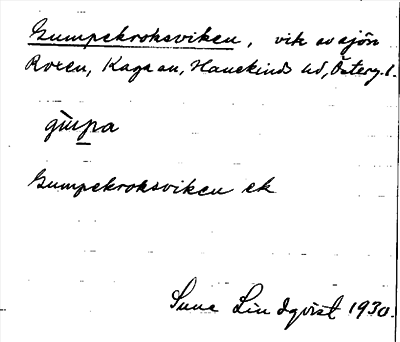 Gumpekroksviken, vik av sjön
Roxen, Kaga sn, Hanekinds hd, Österg. l.
gùmpa
Gumpekroksviken ek
Sune Lindqvist 1930.